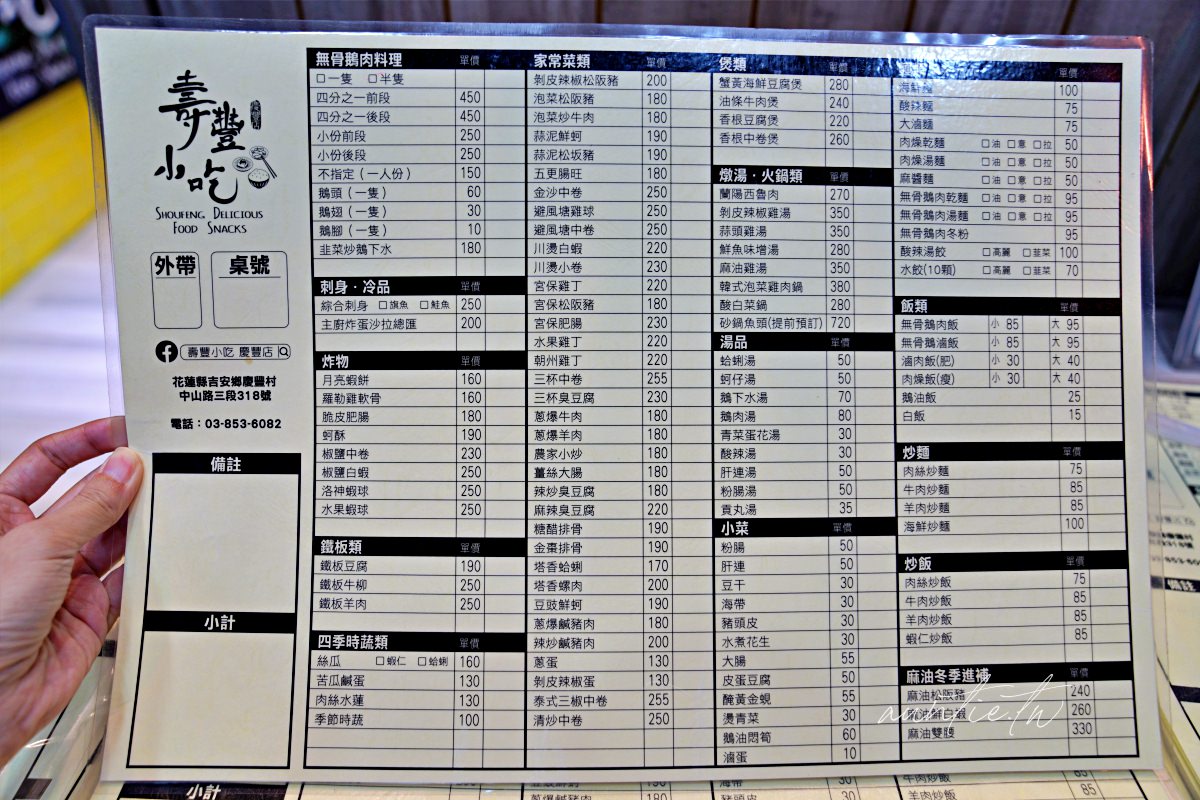 壽豐
小吃
SHOUFENG DELICIOUS
FOOD SNACKS
外帶
桌號
壽豐小吃 慶豐店
花蓮縣吉安鄉慶豐村
中山路三段318號
電話：03-853-6082
備註
小計
無骨鵝肉料理 單價
□一隻 □半隻
四分之一前段 450
四分之一後段 450
小份前段 250
小份後段 250
不指定（一人份） 150
鵝頭（一隻） 60
鵝翅（一隻） 30
鵝腳（一隻） 10
韭菜炒鵝下水 180
刺身．冷品 單價
綜合刺身 □旗魚 □鮭魚 250
主廚炸蛋沙拉總匯 200
炸物 單價
月亮蝦餅 160
羅勒雞軟骨 160
脆皮肥腸 180
蚵酥 190
椒鹽中卷 230
椒鹽白蝦 250
洛神蝦球 250
水果蝦球 250
鐵板類 單價
鐵板豆腐 190
鐵板牛柳 250
鐵板羊肉 250
四季時蔬類 單價
絲瓜 □蝦仁 □蛤蜊 160
苦瓜鹹蛋 130
肉絲水蓮 130
季節時蔬 100
家常菜類 單價
剝皮辣椒松阪豬 200
泡菜松阪豬 180
泡菜炒牛肉 180
蒜泥鮮蚵 190
蒜泥松坂豬 190
五更腸旺 180
金沙中卷 250
避風塘雞球 250
避風塘中卷 250
川燙白蝦 220
川燙小卷 230
宮保雞丁 220
宮保松阪豬 180
宮保肥腸 230
水果雞丁 220
朝州雞丁 220
三杯中卷 255
三杯臭豆腐 230
蔥爆牛肉 180
蔥爆羊肉 180
農家小炒 180
薑絲大腸 180
辣炒臭豆腐 180
麻辣臭豆腐 220
糖醋排骨 190
金棗排骨 190
塔香蛤蜊 170
塔香螺肉 200
豆豉鮮蚵 190
蔥爆鹹豬肉 180
辣炒鹹豬肉 200
蔥蛋 130
剝皮辣椒蛋 130
泰式三椒中卷 255
清炒中卷 250
煲類 單價
蟹黃海鮮豆腐煲 280
油條牛肉煲 240
香根豆腐煲 220
香根中卷煲 260
燉湯．火鍋類 單價
蘭陽西魯肉 270
剝皮辣椒雞湯 350
蒜頭雞湯 350
鮮魚味增湯 280
麻油雞湯 350
韓式泡菜雞肉鍋 380
酸白菜鍋 280
砂鍋魚頭(提前預訂) 720
湯品 單價
蛤蜊湯 50
蚵仔湯 50
鵝下水湯 70
鵝肉湯 80
青菜蛋花湯 30
酸辣湯 30
肝連湯 50
粉腸湯 50
貢丸湯 35
小菜 單價
粉腸 50
肝連 50
豆干 30
海帶 30
豬頭皮 30
水煮花生 30
大腸 55
皮蛋豆腐 50
醃黃金蜆 55
燙青菜 30
鵝油悶筍 60
滷蛋 10
單價
海鮮麵 100
酸辣麵 75
大滷麵 75
肉燥乾麵 □油 □意 □拉 50
肉燥湯麵 □油 □意 □拉 50
麻醬麵 □油 □意 □拉 50
無骨鵝肉乾麵 □油 □意 □拉 95
無骨鵝肉湯麵 □油 □意 □拉 95
無骨鵝肉冬粉 95
酸辣湯餃 □高麗 □韭菜 100
水餃(10顆) □高麗 □韭菜 70
飯類 單價
無骨鵝肉飯 小 85 大 95
無骨鵝滷飯 小 85 大 95
滷肉飯(肥) 小 30 大 40
肉燥飯(瘦) 小 30 大 40
鵝油飯 25
白飯 15
炒麵 單價
肉絲炒麵 75
牛肉炒麵 85
羊肉炒麵 85
海鮮炒麵 100
炒飯 單價
肉絲炒飯 75
牛肉炒飯 85
羊肉炒飯 85
蝦仁炒飯 85
麻油冬季進補 單價
麻油松阪豬 240
麻油鮮白蝦 260
麻油雙腰 330
auntie.tw
小計
蔥爆鹹豬肉 180
海帶 30
豬頭皮 30
牛肉炒飯 85
羊肉炒飯 85